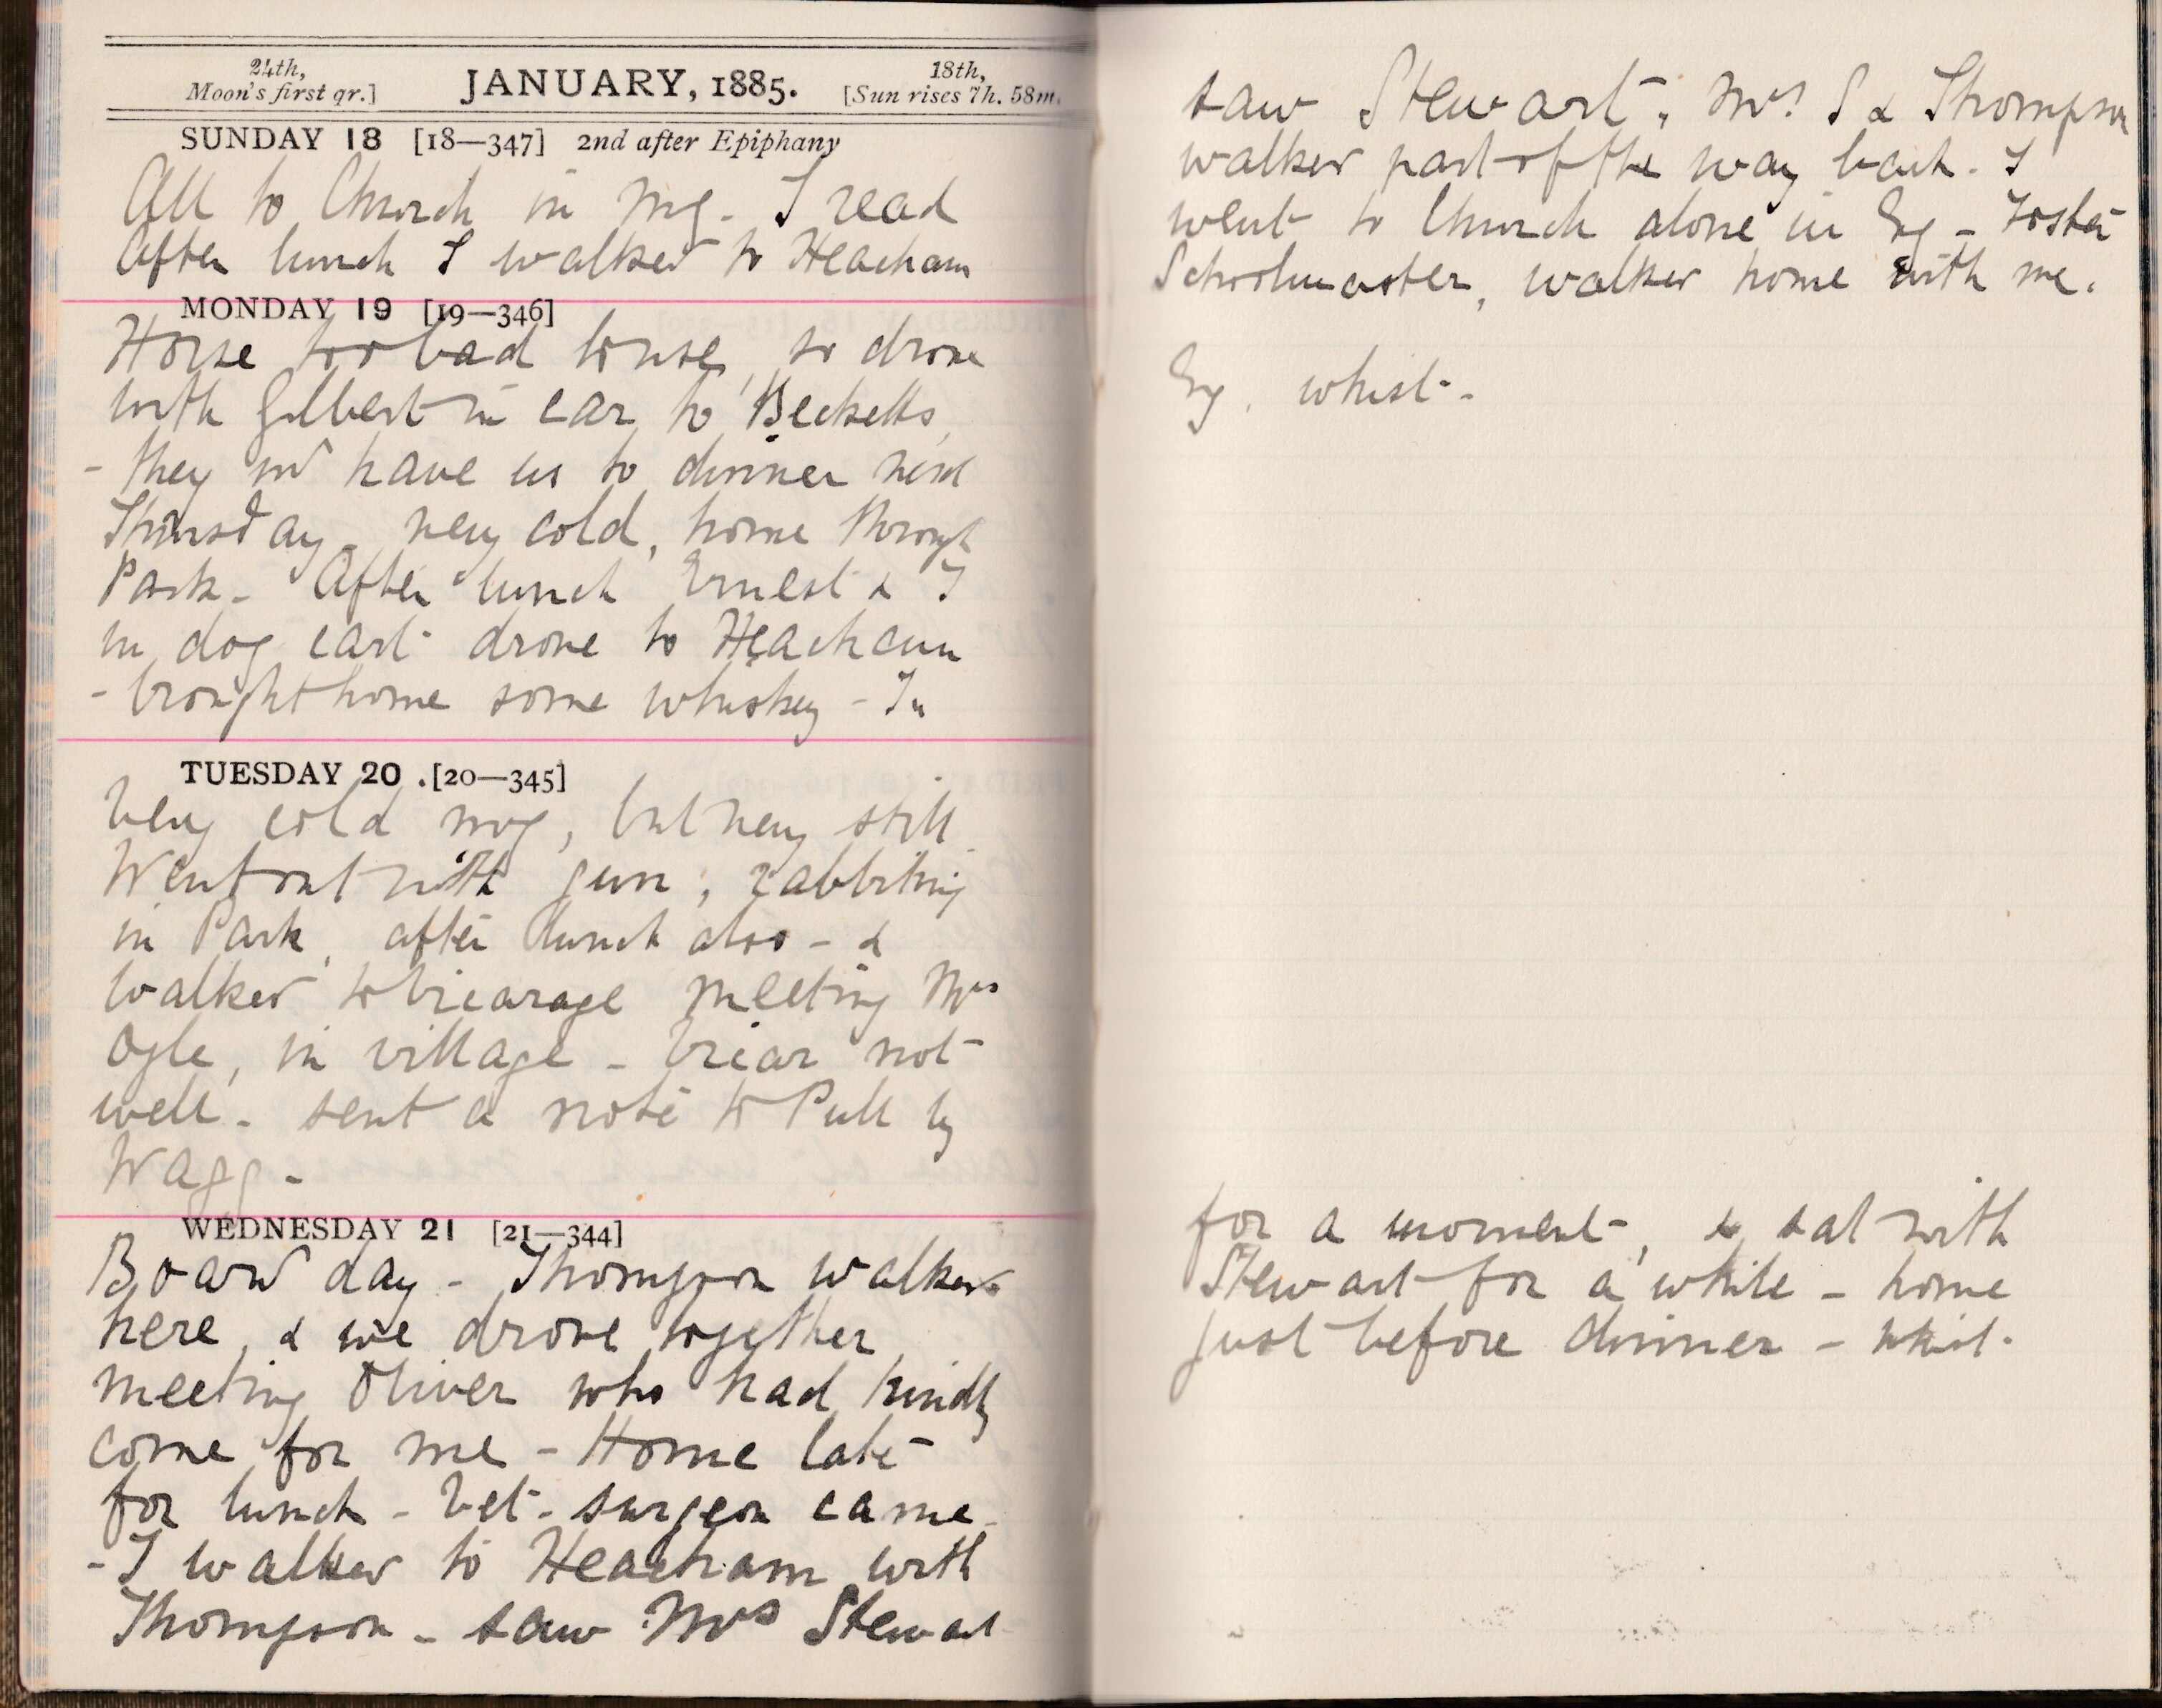 24th,
Moon's first qr.]
JANUARY, 1885.
18th,
[Sun rises 7h. 58m.
SUNDAY 18 [18—347] 2nd after Epiphany
All to Church in mg. I read
After lunch I walked to Heacham
MONDAY 19 [19—346]
Horse too bad to use, so drove
with Gilbert in car to Becketts,
- they wd have us to dinner next
Thursday - very cold, home through
Park - After lunch Ernest & I
in dog cart drove to Heacham
- brought home some whiskey - In
TUESDAY 20 .[20—345]
Very cold mg, but very still
Went out with gun, rabbiting
in Park, after lunch also - &
walked to Vicarage meeting Mrs
Ogle, in village - Vicar not
well - sent a note to Pull by
Wagg -
WEDNESDAY 21 [21—344]
Board day - Thompson walked
here, & we drove together
meeting Oliver who had kindly
come for me - Home late
for lunch - Vet. surgeon came -
- I walked to Heacham with
Thompson - saw Mrs Stewart
saw Stewart, Mrs S & Thompson
walked part of the way back. I
went to Church alone in Eg - Foster
Schoolmaster, walked home with me.
Eg. whist -
for a moment, & sat with
Stewart for a while - home
just before dinner - whist.